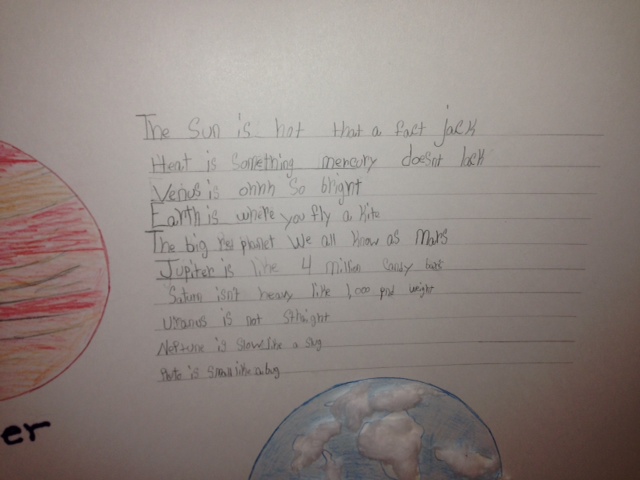 The Sun is hot that a fact jack
Heat is something mercury doesnt lack
Venus is ohhh so bright
Earth is where you fly a kite
The big red planet we all know as mars
Jupiter is like 4 million candy bars
Saturn isn't heavy like 1,000 pnd weight
Uranus is not straight
Neptune is slow like a slug
Pluto is small like a bug
er